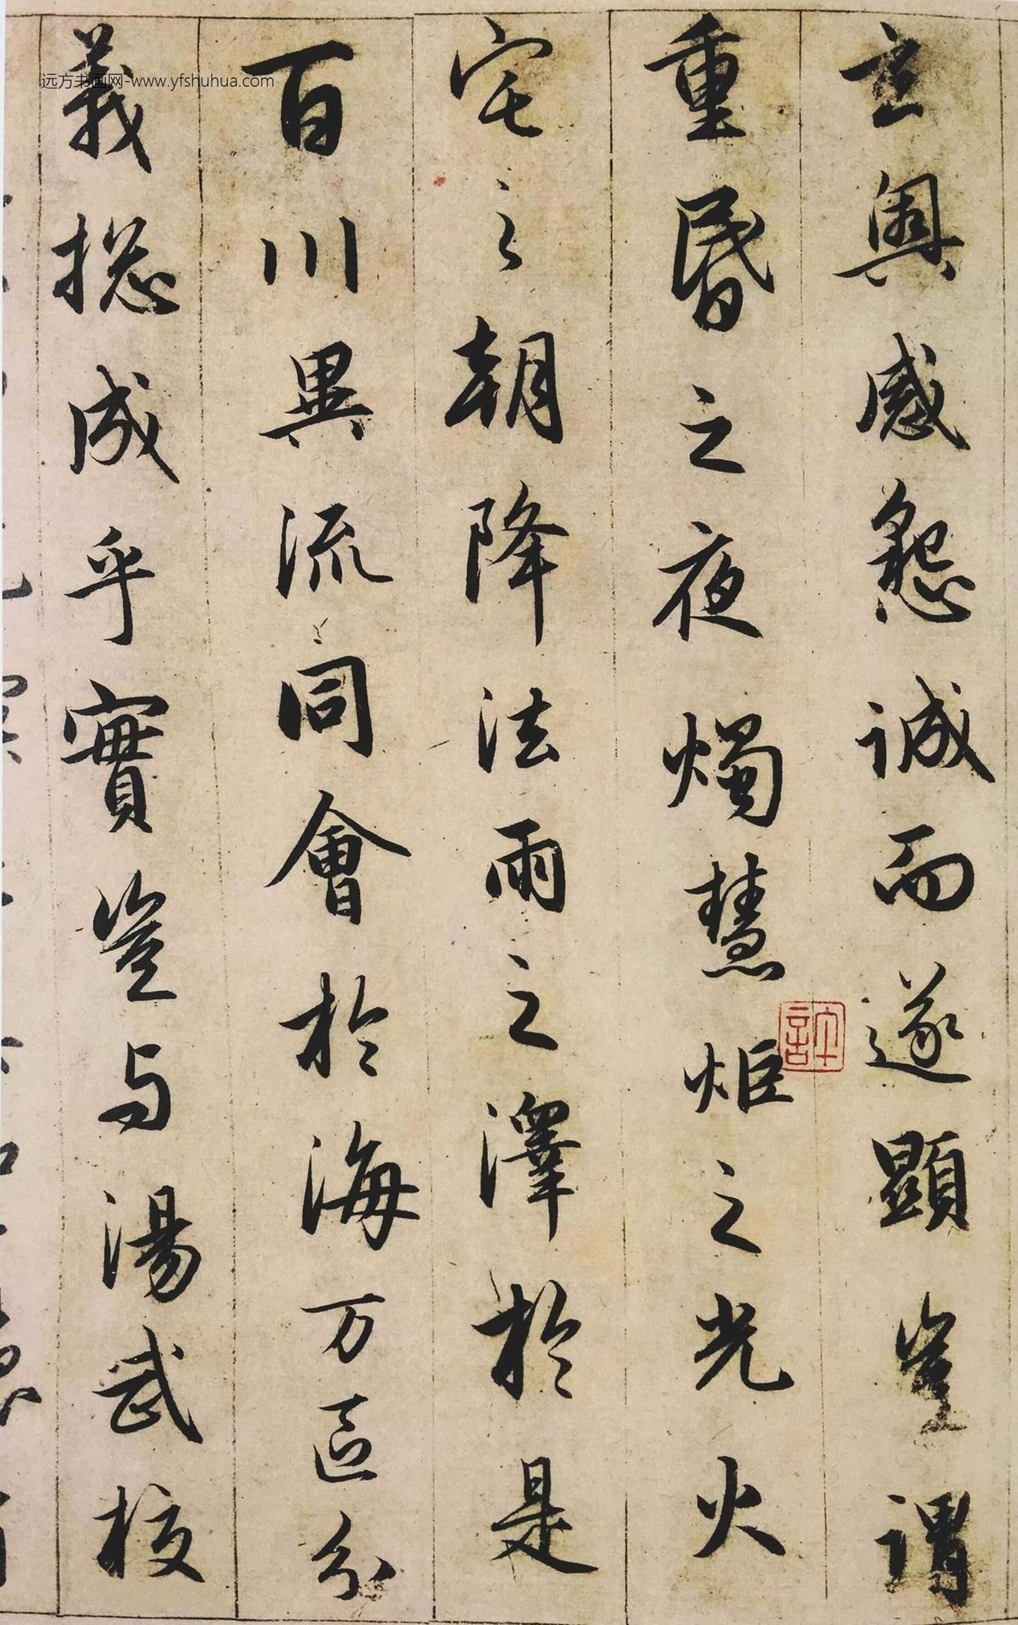 玄奧感懇誠而遂顯豈謂
重昏之夜燭慧炬之光火
宅之朝降法雨之澤於是
百川異流同會於海万區分
義揔成乎實豈与湯武校
远方书画网-www.yfshuhua.com